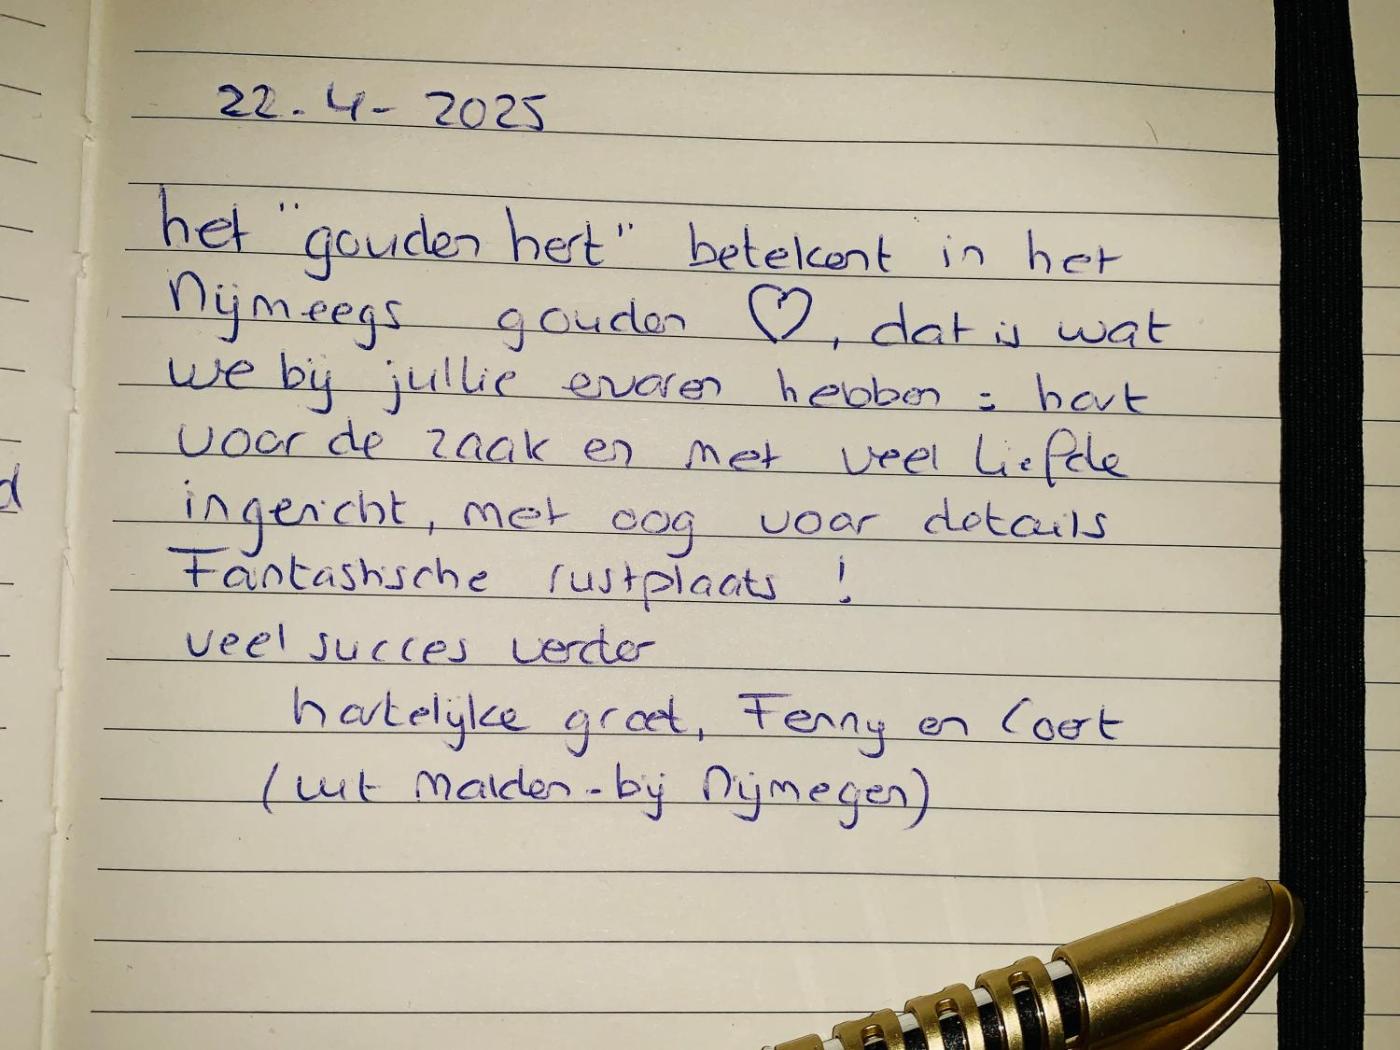 22-4-2025
het "gouden hert" betekent in het
Nijmeegs gouden ♡, dat is wat
we bij jullie ervaren hebben = hart
voor de zaak en met veel liefde
ingericht, met oog voor details
Fantastische rustplaats !
veel succes verder
hartelijke groet, Fenny en Coert
(uit Malden - bij Nijmegen)
d